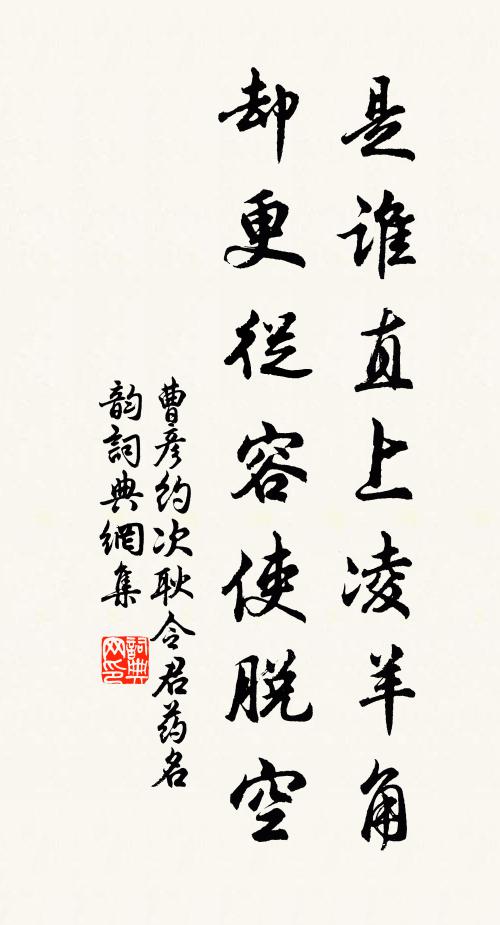 是谁直上凌羊角
却更從容使脱空
曹彦約次耿令君药名
韵詞典網集
詞典网印